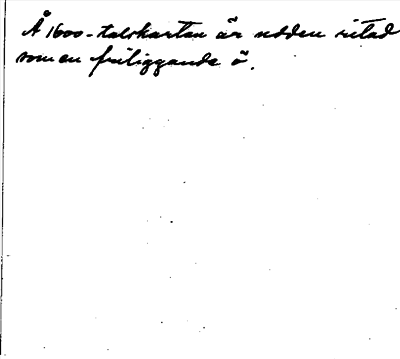 Å 1600-talskartan är udden ritad
som en friliggande ö.